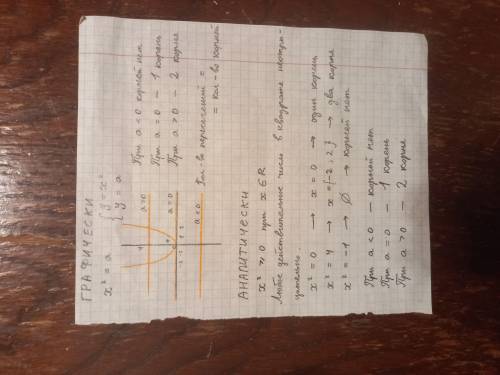 ГРАФИЧЕСКИ
x² = a
{ y = x²
{ y = a
a>0
a = 0
a < 0
При a < 0 корней нет
При a = 0 – 1 корень
При a > 0 – 2 корня
Кол-во пересечений =
= кол-во корней
АНАЛИТИЧЕСКИ
x² ⩾ 0 при x ∈ R
Любое действительное число в квадрате неотри-
цательно.
x² = 0 → x = 0 → один корень
x² = 4 → x = {-2, 2} → два корня
x² = -1 → ∅ → корней нет.
При a < 0 – корней нет
При a = 0 – 1 корень
При a > 0 – 2 корня